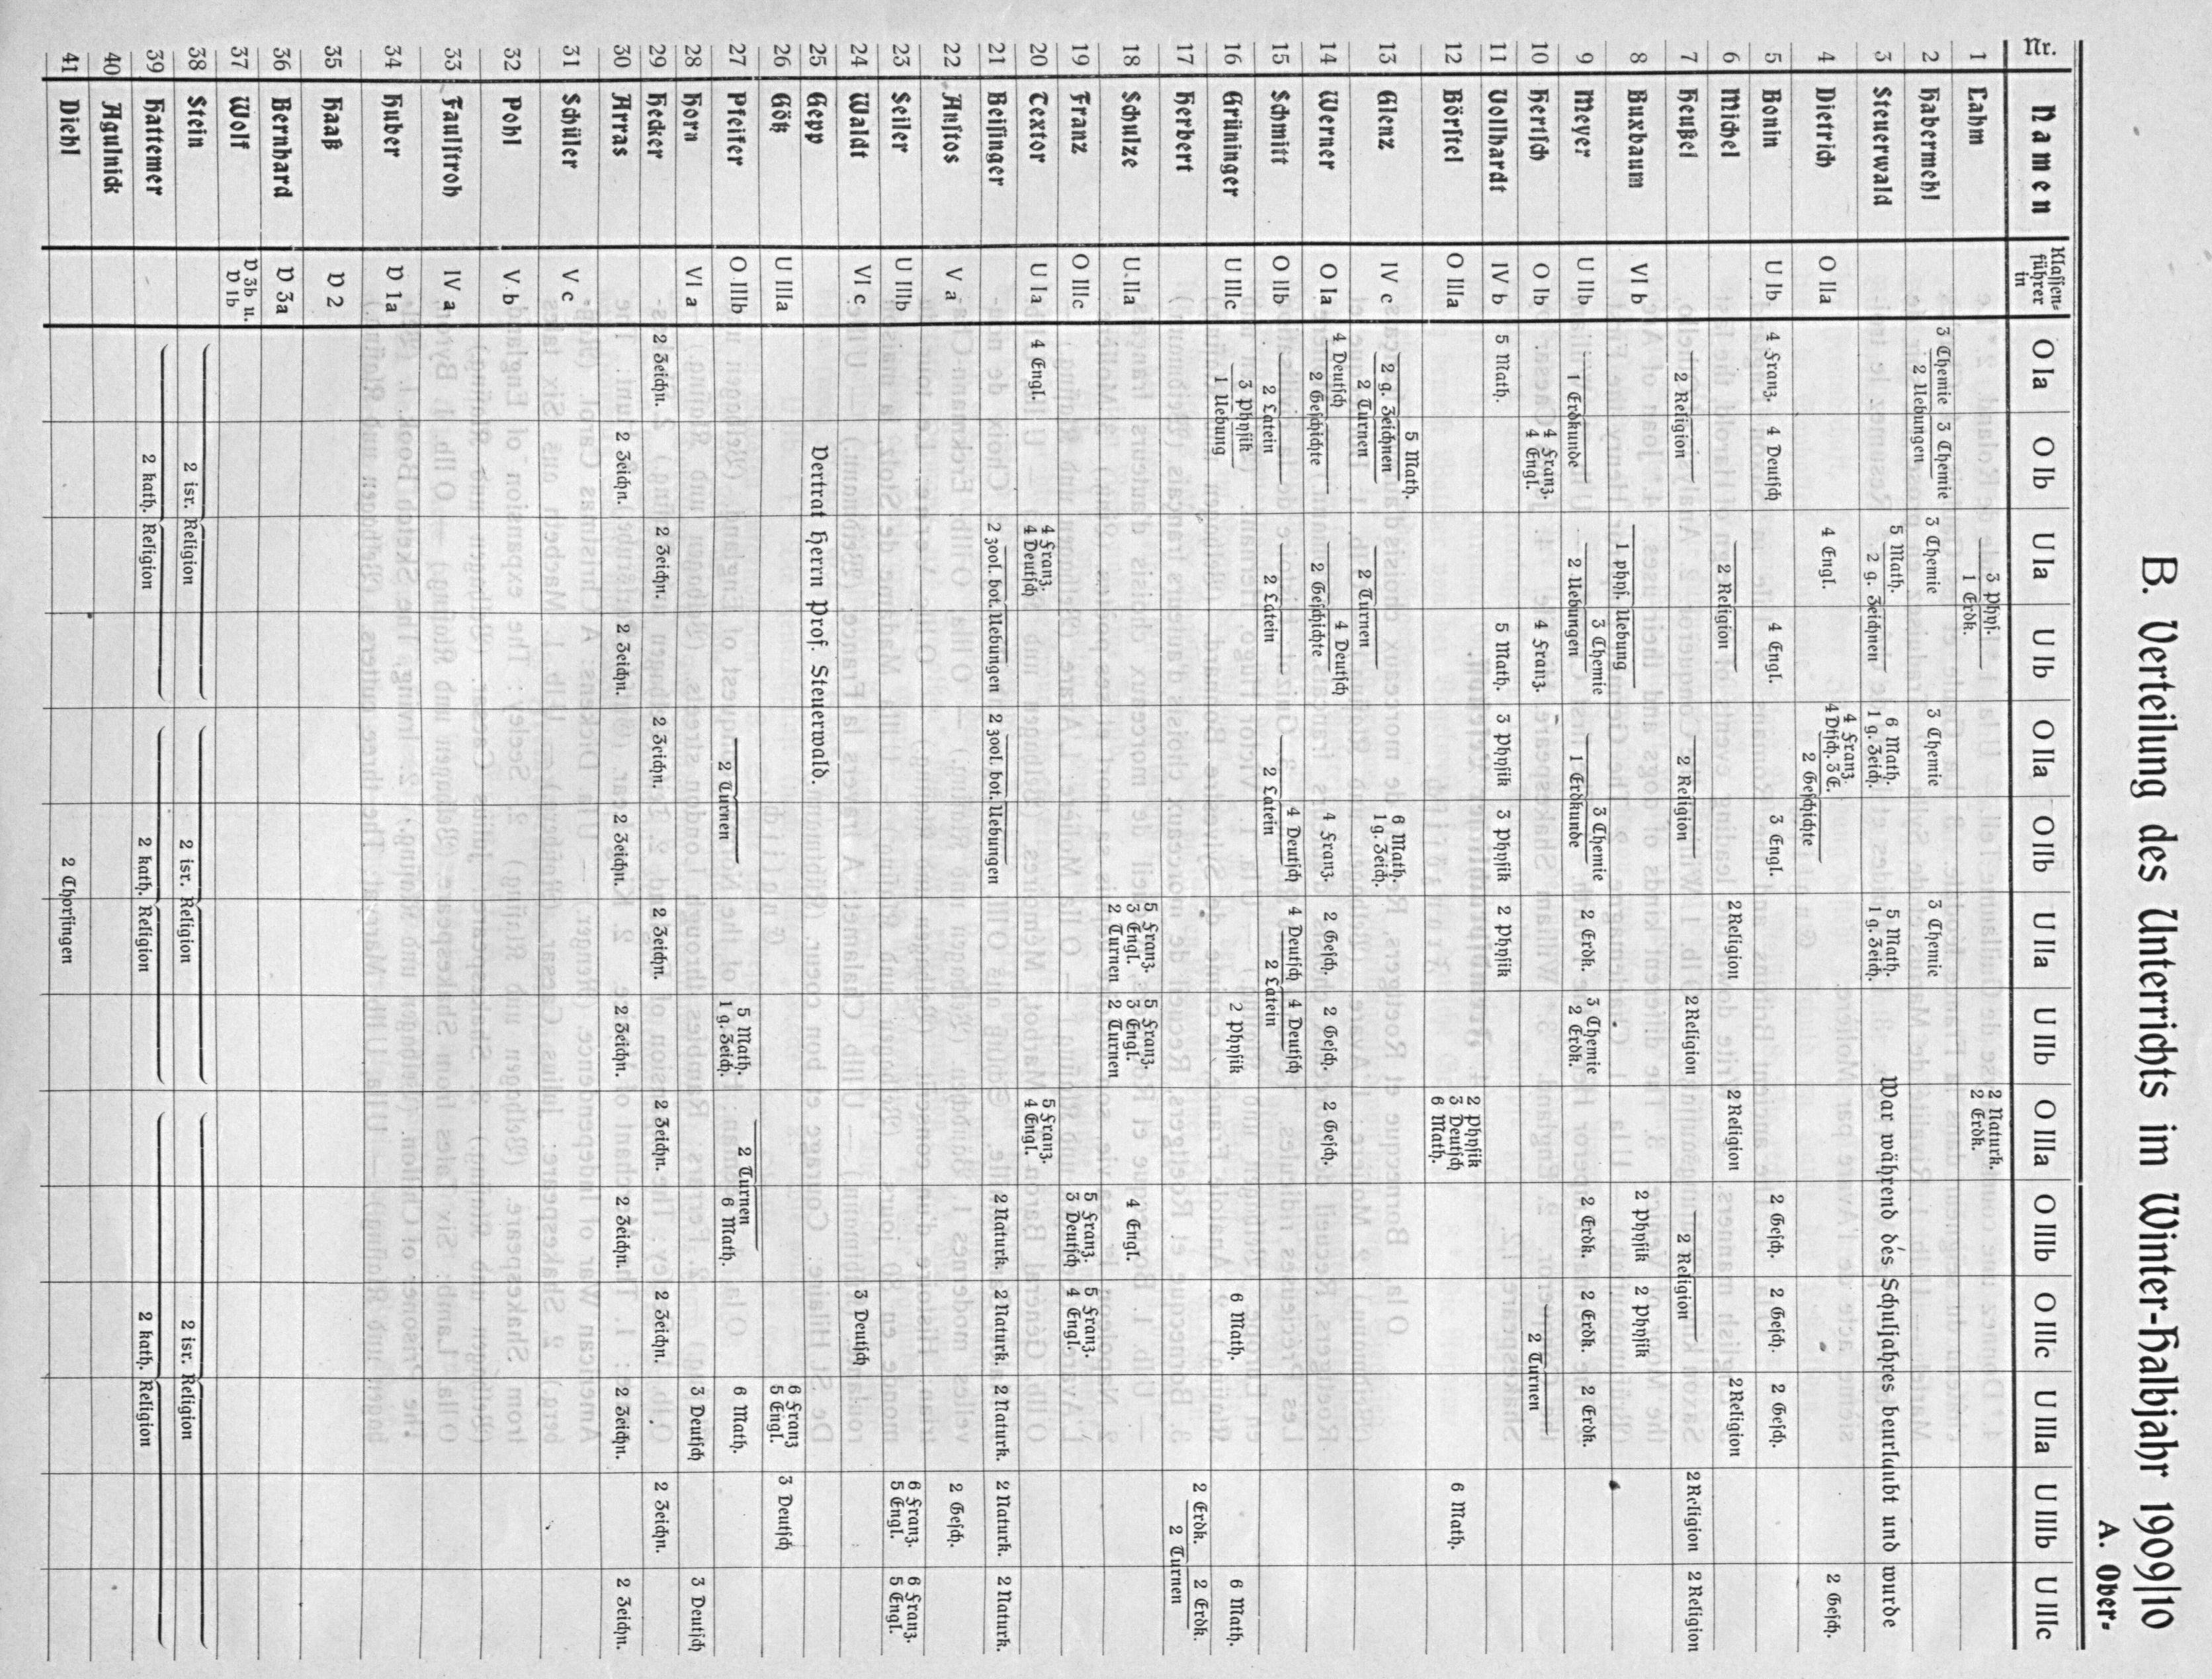 B. Verteilung des Unterrichts im Winter-Halbjahr 1909/10
A. Ober-
Nr. Namen Klassenführer in O Ia O Ib U Ia U Ib O IIa O IIb U IIa U IIb O IIIa O IIIb O IIIc U IIIa U IIIb U IIIc
1 Lahm 3 Phys. 1 Erdk. 2 Naturk. 2 Erdk.
2 Habermehl 3 Chemie 3 Chemie 2 Uebungen 3 Chemie 3 Chemie 3 Chemie
3 Steuerwald 5 Math. 2 g. Zeichnen 6 Math. 1 g. Zeich. 5 Math. 1 g. Zeich. War während des Schuljahres beurlaubt und wurde
4 Dietrich O IIa 4 Engl. 4 Franz. 4 Dtsch. 3 E. 2 Geschichte 2 Gesch.
5 Bonin U Ib 4 Franz. 4 Deutsch 4 Engl. 3 Engl. 2 Gesch. 2 Gesch. 2 Gesch.
6 Michel 2 Religion 2 Religion 2 Religion 2 Religion
7 Heußel 2 Religion 2 Religion 2 Religion 2 Religion 2 Religion 2 Religion
8 Buxbaum VI b 1 phys. Uebung 2 Physik 2 Physik
9 Meyer U IIb 1 Erdkunde 2 Uebungen 3 Chemie 1 Erdkunde 3 Chemie 2 Erdk. 3 Chemie 2 Erdk. 2 Erdk. 2 Erdk. 2 Erdk.
10 Hertsch O Ib 4 Franz. 4 Engl. 4 Franz. 2 Turnen
11 Vollhardt IV b 5 Math. 5 Math. 3 Physik 3 Physik 2 Physik
12 Börstel O IIIa 2 Physik 3 Deutsch 6 Math. 6 Math.
13 Glenz IV c 2 g. Zeichnen 5 Math. 2 Turnen 2 Turnen 6 Math. 1 g. Zeich.
14 Werner O Ia 4 Deutsch 2 Geschichte 2 Geschichte 4 Deutsch 4 Franz. 2 Gesch. 2 Gesch. 2 Gesch.
15 Schmitt O IIb 2 Latein 2 Latein 2 Latein 4 Deutsch 4 Deutsch 2 Latein 4 Deutsch
16 Grüninger U IIIc 3 Physik 1 Uebung 2 Physik 6 Math. 6 Math.
17 Herbert 2 Erdk. 2 Turnen 2 Erdk.
18 Schulze U IIa 5 Franz. 3 Engl. 2 Turnen 5 Franz. 3 Engl. 2 Turnen 4 Engl.
19 Franz O IIIc 5 Franz. 3 Deutsch 5 Franz. 4 Engl.
20 Textor U Ia 4 Engl. 4 Franz. 4 Deutsch 5 Franz. 4 Engl.
21 Beisinger 2 zool. bot. Uebungen 2 zool. bot. Uebungen 2 Naturk. 2 Naturk. 2 Naturk. 2 Naturk. 2 Naturk.
22 Anstos V a 2 Gesch.
23 Seiler U IIIb 6 Franz. 5 Engl. 6 Franz. 5 Engl.
24 Waldt VI c 3 Deutsch
25 Gepp Vertrat Herrn Prof. Steuerwald.
26 Götz U IIIa 6 Franz 5 Engl. 3 Deutsch
27 Pfeifer O IIIb 2 Turnen 5 Math. 1 g. Zeich. 2 Turnen 6 Math. 6 Math.
28 Horn VI a 3 Deutsch 3 Deutsch
29 Hecker 2 Zeichn. 2 Zeichn. 2 Zeichn. 2 Zeichn. 2 Zeichn. 2 Zeichn. 2 Zeichn.
30 Arras 2 Zeichn. 2 Zeichn. 2 Zeichn. 2 Zeichn. 2 Zeichn. 2 Zeichn. 2 Zeichn.
31 Schüler V c
32 Pohl V b
33 Faulstroh IV a
34 Huber V 1a
35 Haaß V 2
36 Bernhard V 3a
37 Wolf V 3b u. V 1b
38 Stein 2 isr. Religion 2 isr. Religion 2 isr. Religion
39 Hattemer 2 kath. Religion 2 kath. Religion 2 kath. Religion
40 Agulnick
41 Diehl 2 Chorsingen